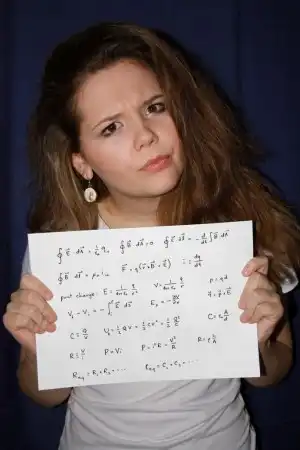 ∮ E⃗ · dA⃗ = 1/ε₀ qᵢₙ ∮ B⃗ · dA⃗ = 0 ∮ E⃗ · ds⃗ = - d/dt ∫ B⃗ · dA⃗
∮ B⃗ · ds⃗ = μ₀ i F⃗ = q(v⃗ × B⃗ + E⃗) i = dq/dt
point charge: E = 1/4πε₀ q/r² V = 1/4πε₀ q/r p = qd
Vf - Vi = - ∫ E⃗ · ds⃗ Eₓ = - ∂V/∂x τ⃗ = p⃗ × E⃗
C = Q/V U = 1/2 QV = 1/2 CV² = 1/2 Q²/C C = ε₀ A/d
R = V/i P = Vi P = i²R = V²/R R = ρ L/A
R_eq = R₁ + R₂ + ··· C_eq = C₁ + C₂ + ···